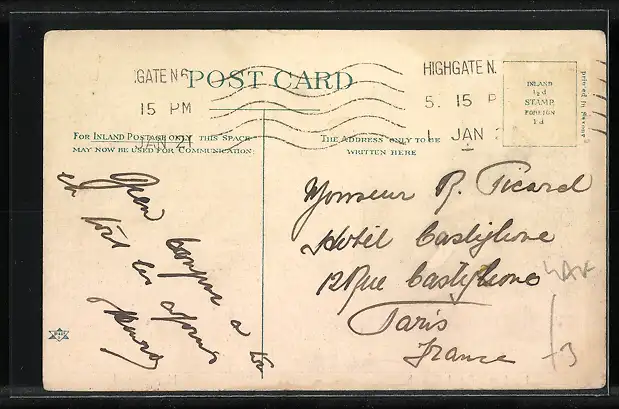 POST CARD
GATE N6
15 PM
JAN 21
HIGHGATE N.
5. 15 P
1 JAN
INLAND
½d
STAMP
FOREIGN
1d
printed in Saxony
FOR INLAND POSTAGE ONLY THIS SPACE
MAY NOW BE USED FOR COMMUNICATION:
THE ADDRESS ONLY TO BE
WRITTEN HERE
Monsieur R. Picard
Hotel Castiglione
12 Rue Castiglione
Paris
France
bonjour a
et tout les